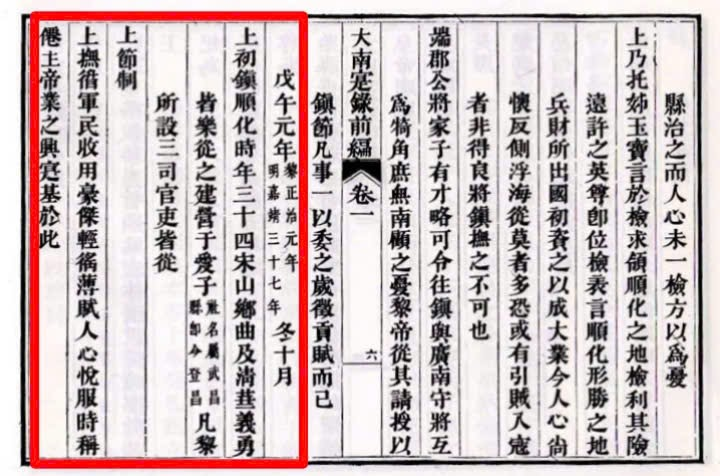 縣治之而人心未一檢方以爲憂
上乃托姊玉寶言於檢求領順化之地檢利其險
遠許之英尊卽位檢表言順化形勝之地
兵財所出國初資之以成大業今人心尙
懷反側浮海從莫者多恐或有引賊入寇
者非得良將鎭撫之不可也
端郡公將家子有才略可令往鎭與廣南守將互
爲犄角庶無南顧之憂黎帝從其請授以
大南寔錄前編 卷一 六
鎭節凡事一以委之歲徵貢賦而已
戊午元年黎正治元年明嘉靖三十七年冬十月
上初鎭順化時年三十四宋山鄕曲及淸華義勇
皆樂從之建營于愛子社名屬武昌縣卽今登昌凡黎
所設三司官吏皆從
上節制
上撫循軍民收用豪傑輕徭薄賦人心悅服時稱
僊主帝業之興寔基於此